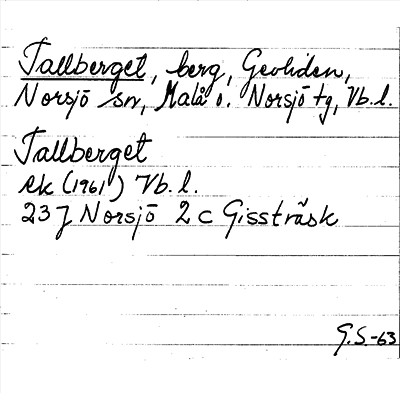 Tallberget, berg, Geoliden,
Norsjö sn, Malå o. Norsjö tg, Vb. l.
Tallberget
ek (1961) Vb. l.
23 J Norsjö 2 c Gissträsk
G.S.-63